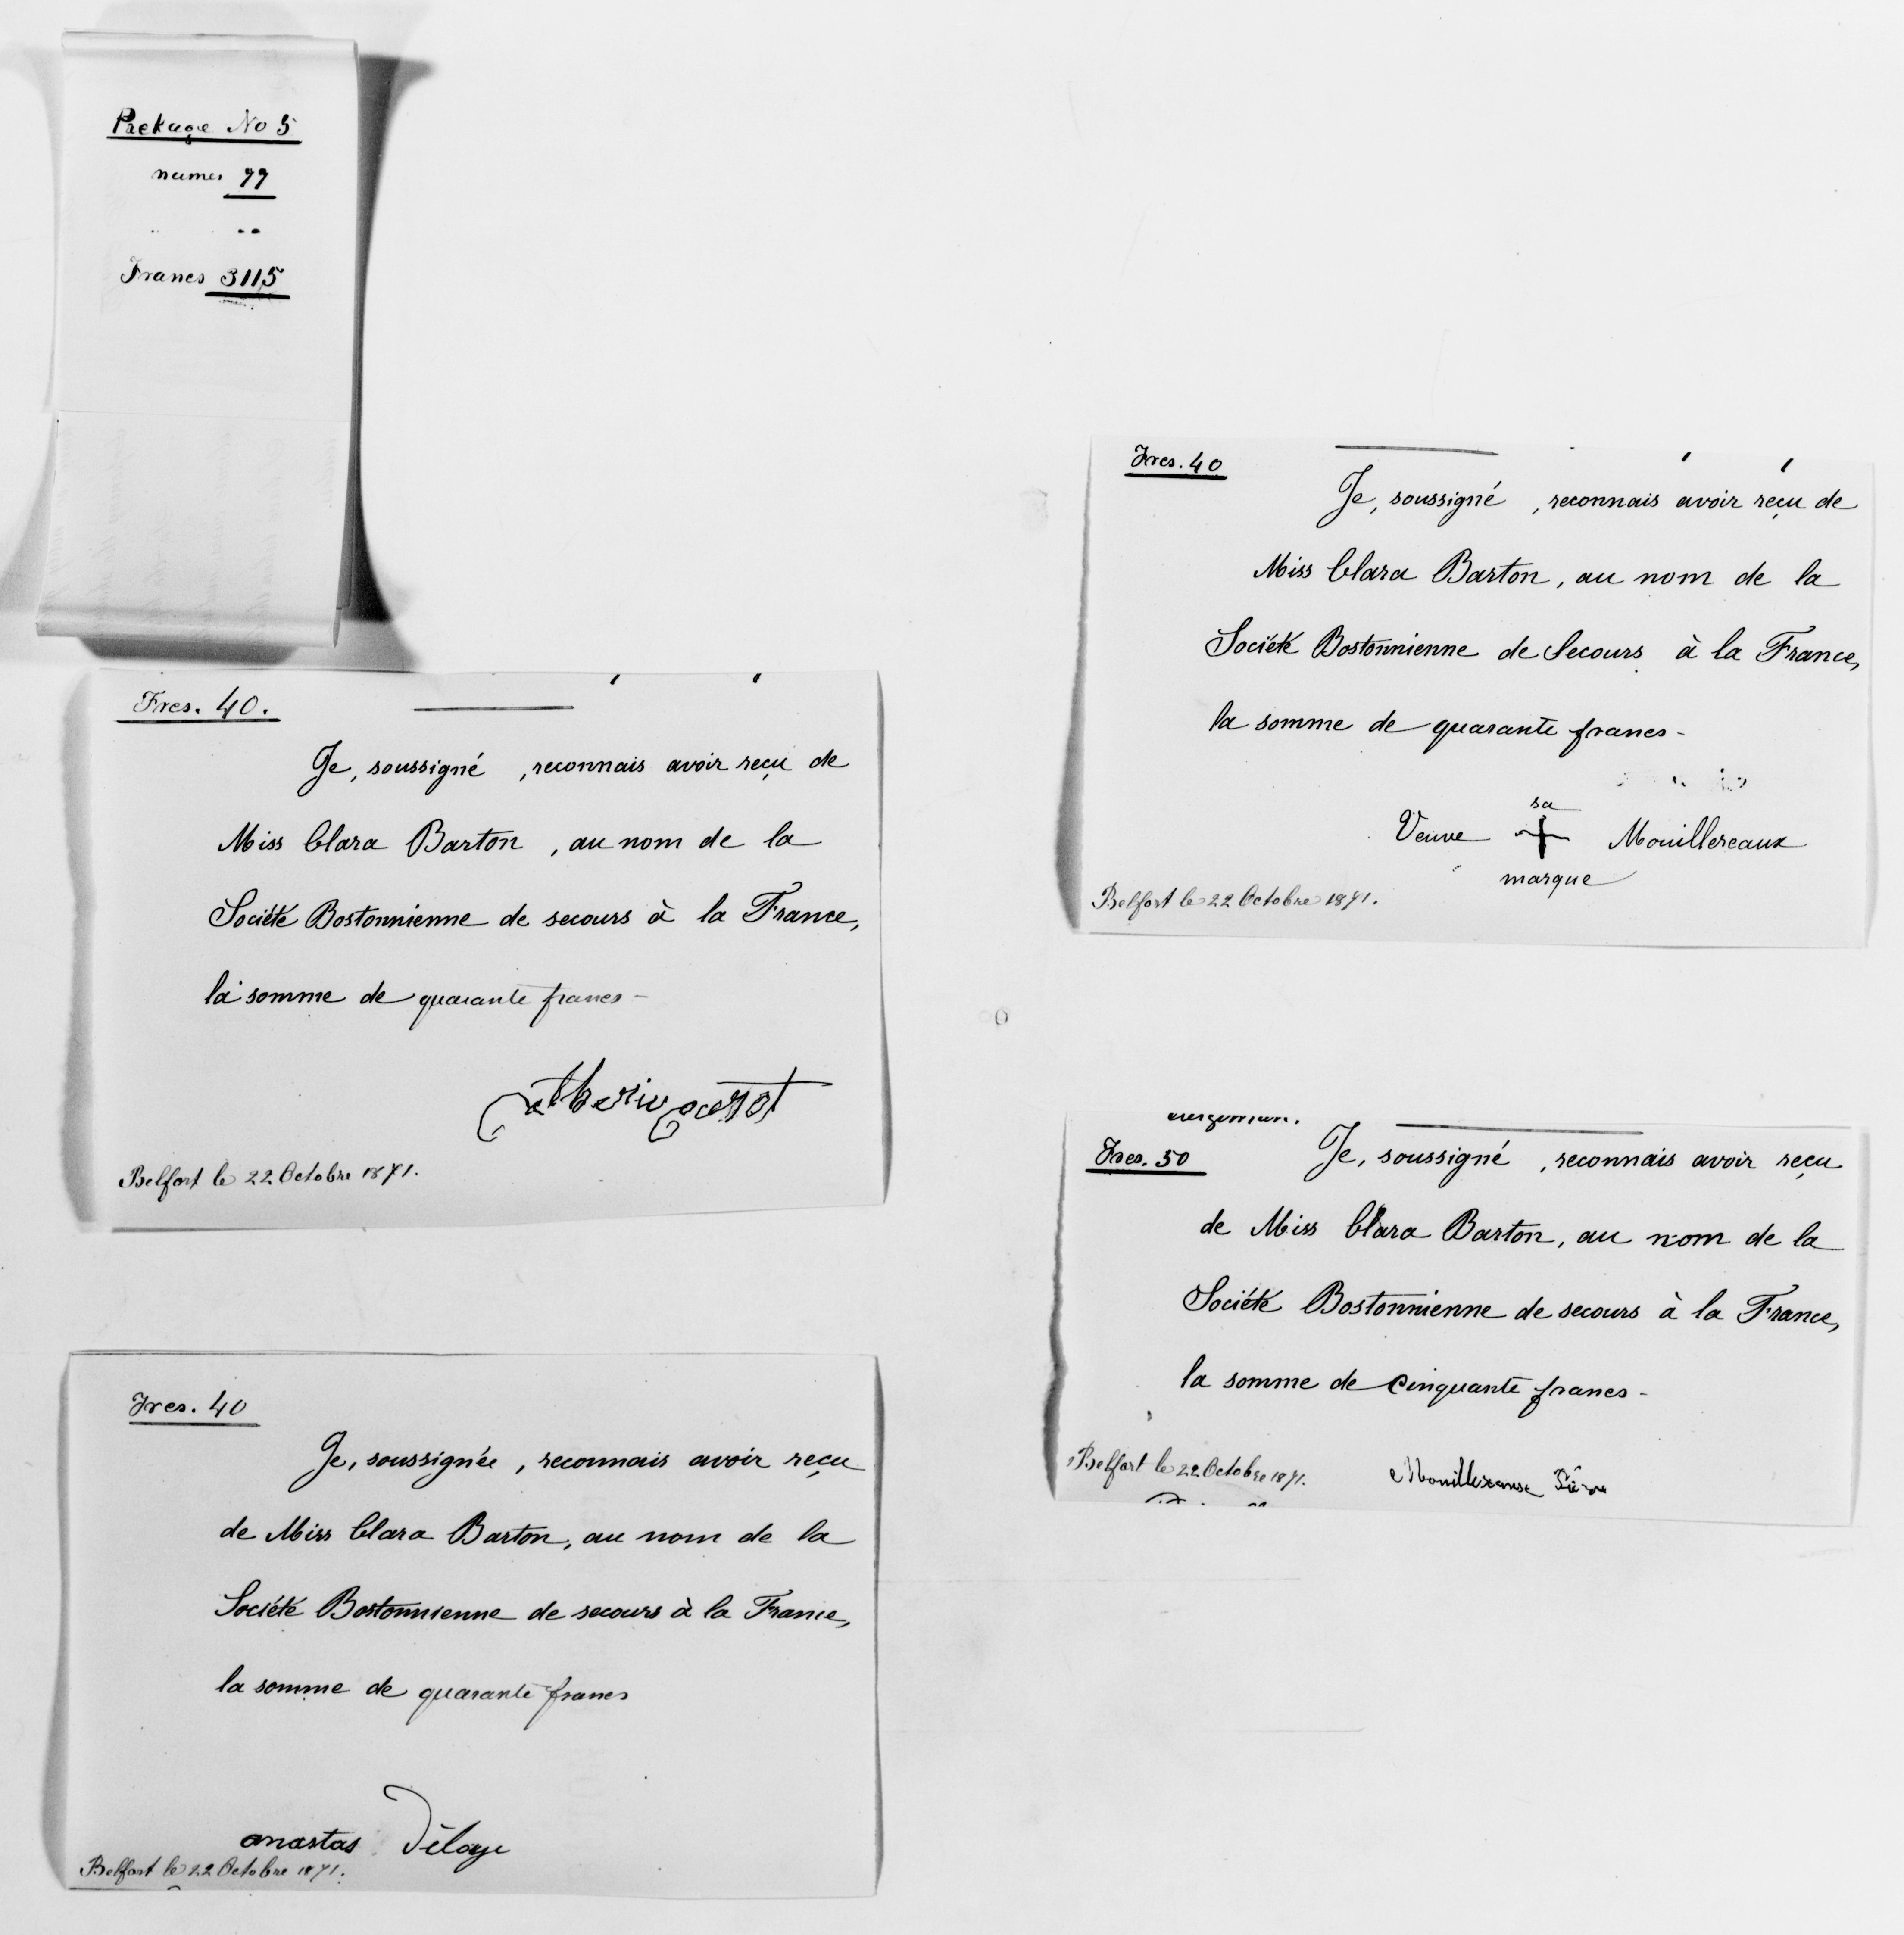 Package No 5
names 77
Francs 3115
Frcs. 40.
Je, soussigné , reconnais avoir reçu de
Miss Clara Barton , au nom de la
Société Bostonnienne de secours à la France,
la somme de quarante francs -
Belfort le 22 Octobre 1871.
Frcs. 40
Je, soussignée , reconnais avoir reçu
de Miss Clara Barton, au nom de la
Société Bostonnienne de secours à la France,
la somme de quarante francs
anastas Déloye
Belfort le 22 Octobre 1871.
Frcs. 40
Je, soussigné , reconnais avoir reçu de
Miss Clara Barton, au nom de la
Société Bostonnienne de Secours à la France,
la somme de quarante francs -
sa
Veuve + Mouillereaux
marque
Belfort le 22 Octobre 1871.
Frcs. 50
Je, soussigné , reconnais avoir reçu
de Miss Clara Barton, au nom de la
Société Bostonnienne de secours à la France,
la somme de Cinquante francs -
Belfort le 22 Octobre 1871.